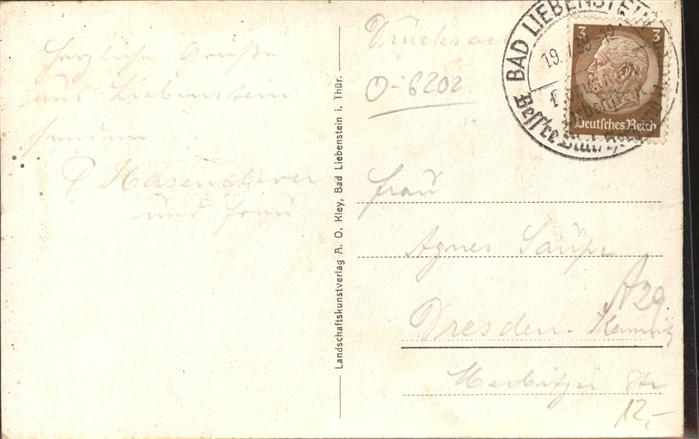 Herzliche Grüße
aus Liebenstein
senden
P. Hasenclever
und Frau
Landschaftskunstverlag A. O. Kley, Bad Liebenstein i. Thür.
Drucksache
O-6202
BAD LIEBENSTEIN
19.
3 3
Deutsches Reich
Frau
Agnes Säupe
A29
Dresden-Kemnitz
Str
12,-